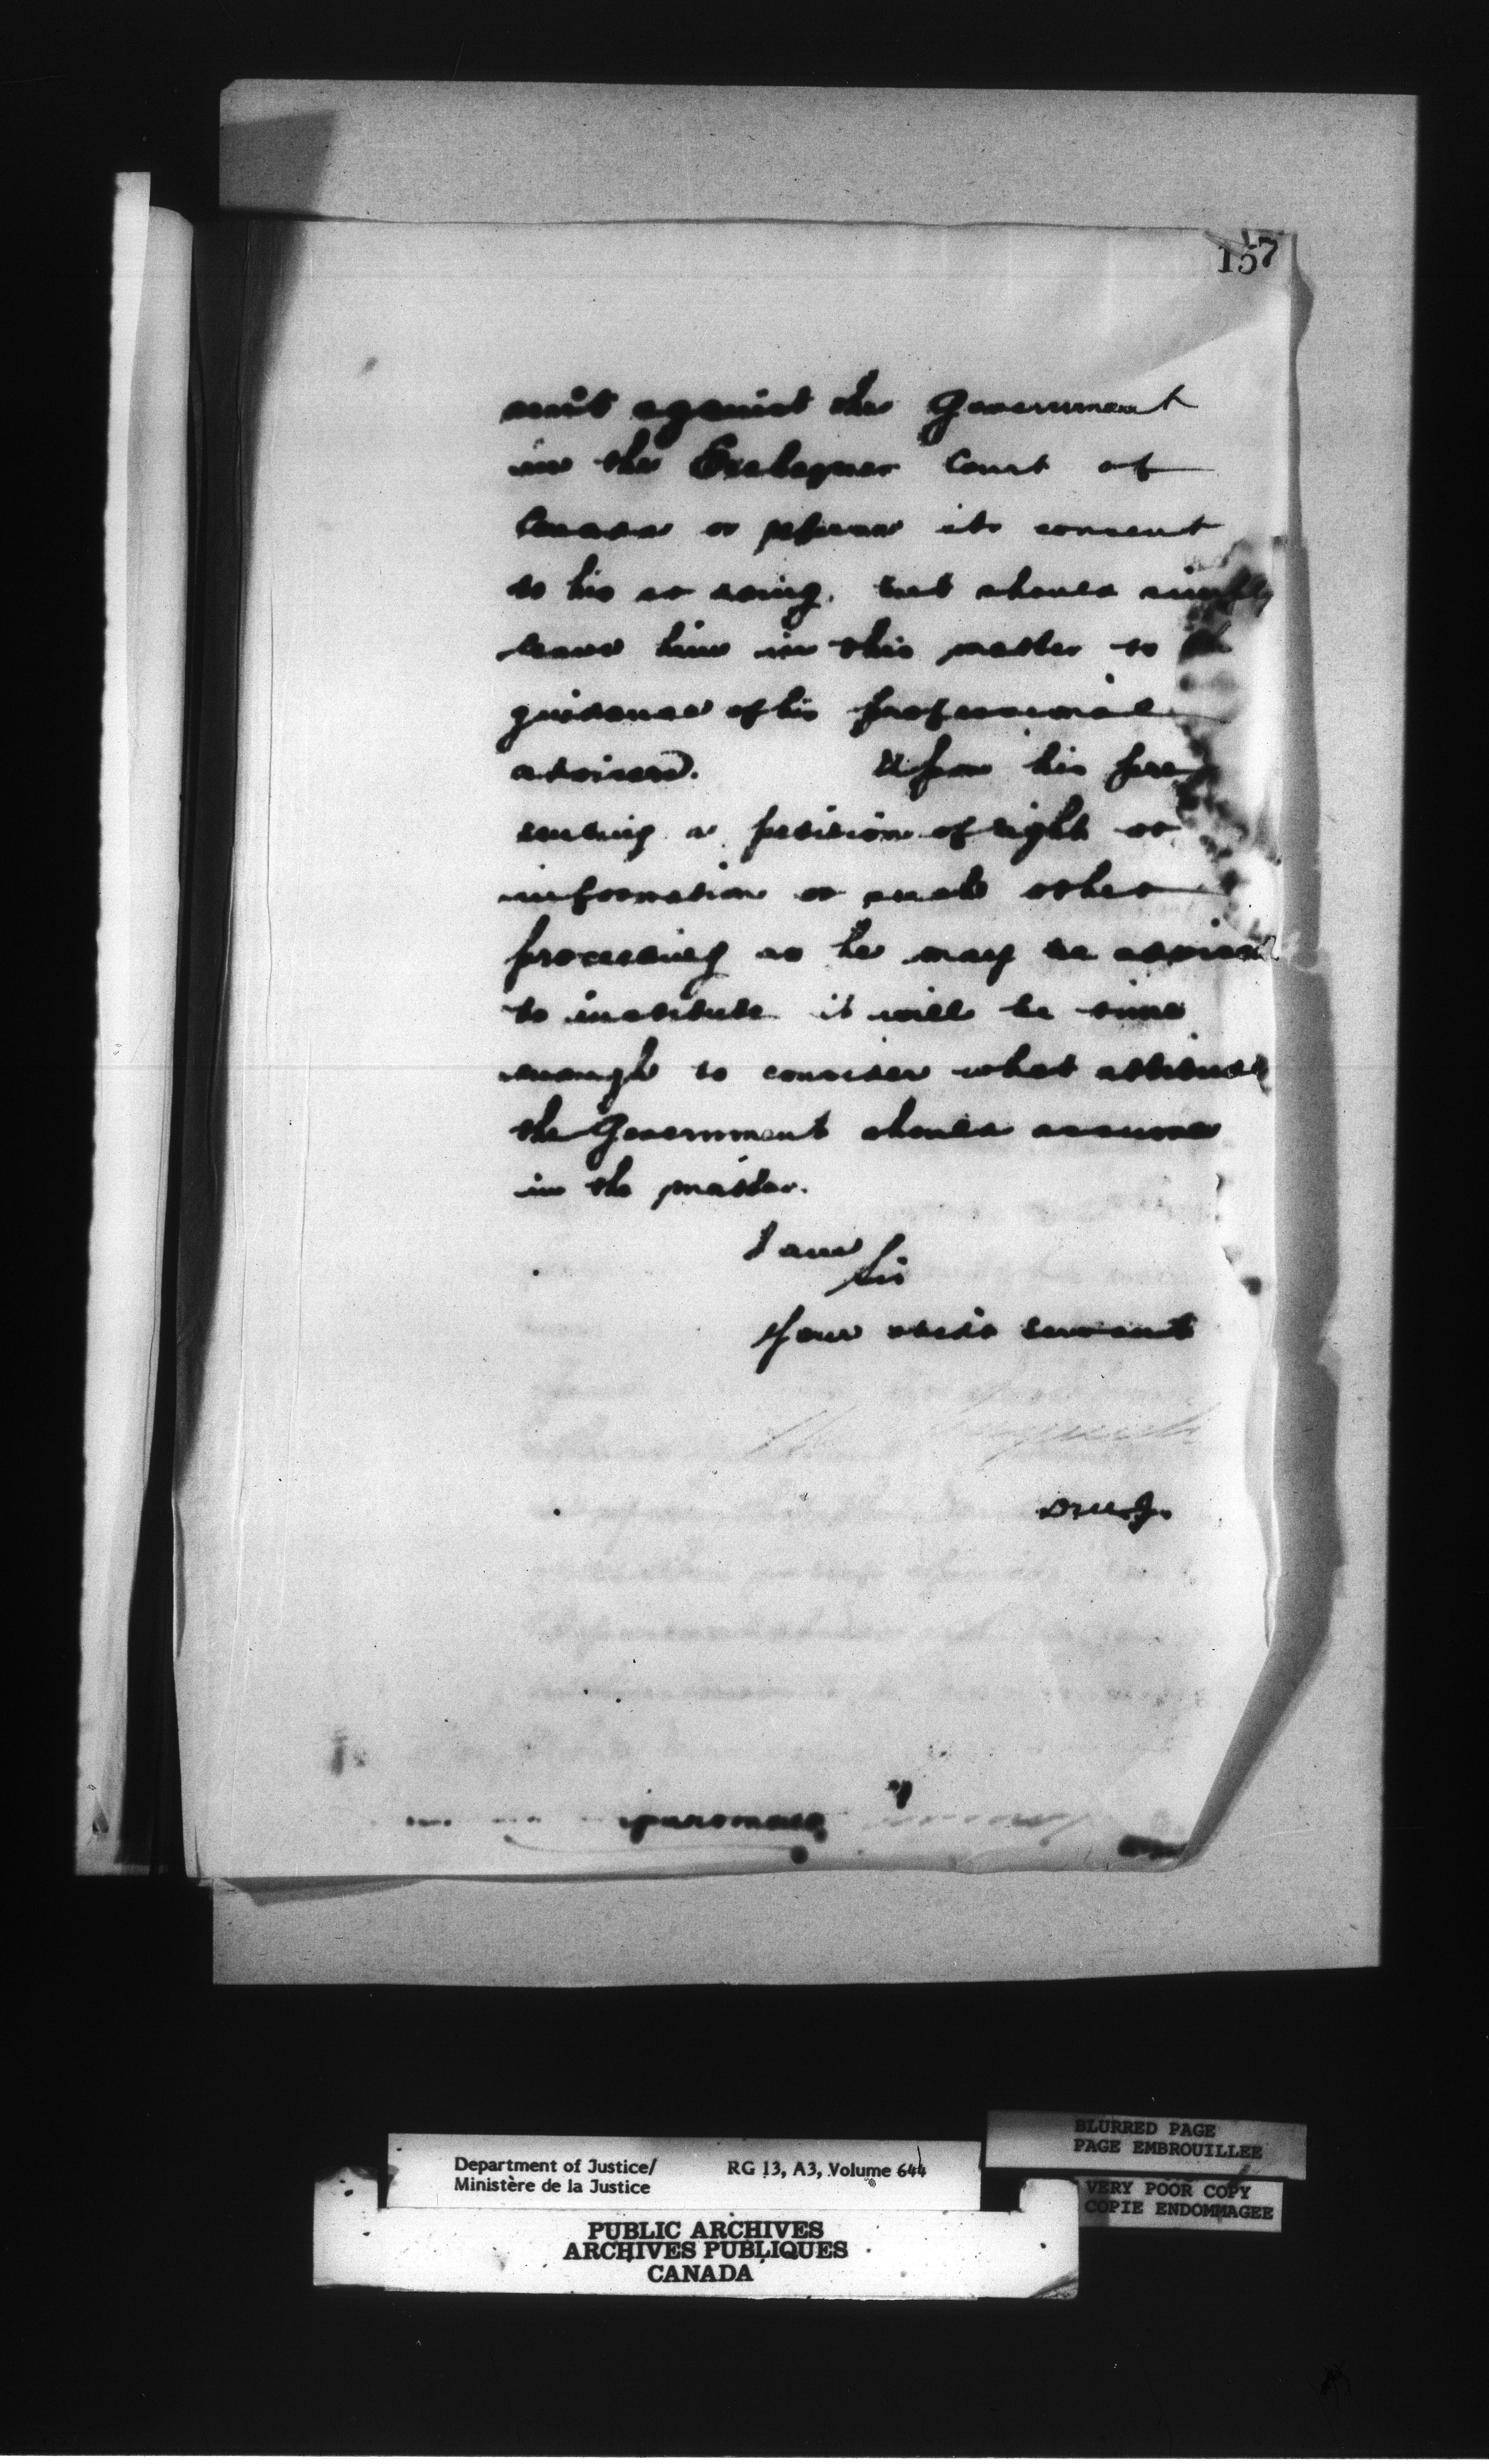 157
suit against the Government
in the Exchequer Court of
Canada or refuse its consent
to his so doing, but should simply
leave him in this matter to the
guidance of his professional
advisers. Upon his pre
senting a petition of right or
information or such other
proceeding as he may be advised
to institute it will be time
enough to consider what attitude
the Government should assume
in the matter.
I am
Sir
Your obdt servant
D.M.J.
BLURRED PAGE
PAGE EMBROUILLEE
Department of Justice/ RG 13, A3, Volume 644
Ministère de la Justice
VERY POOR COPY
COPIE ENDOMMAGEE
PUBLIC ARCHIVES
ARCHIVES PUBLIQUES
CANADA